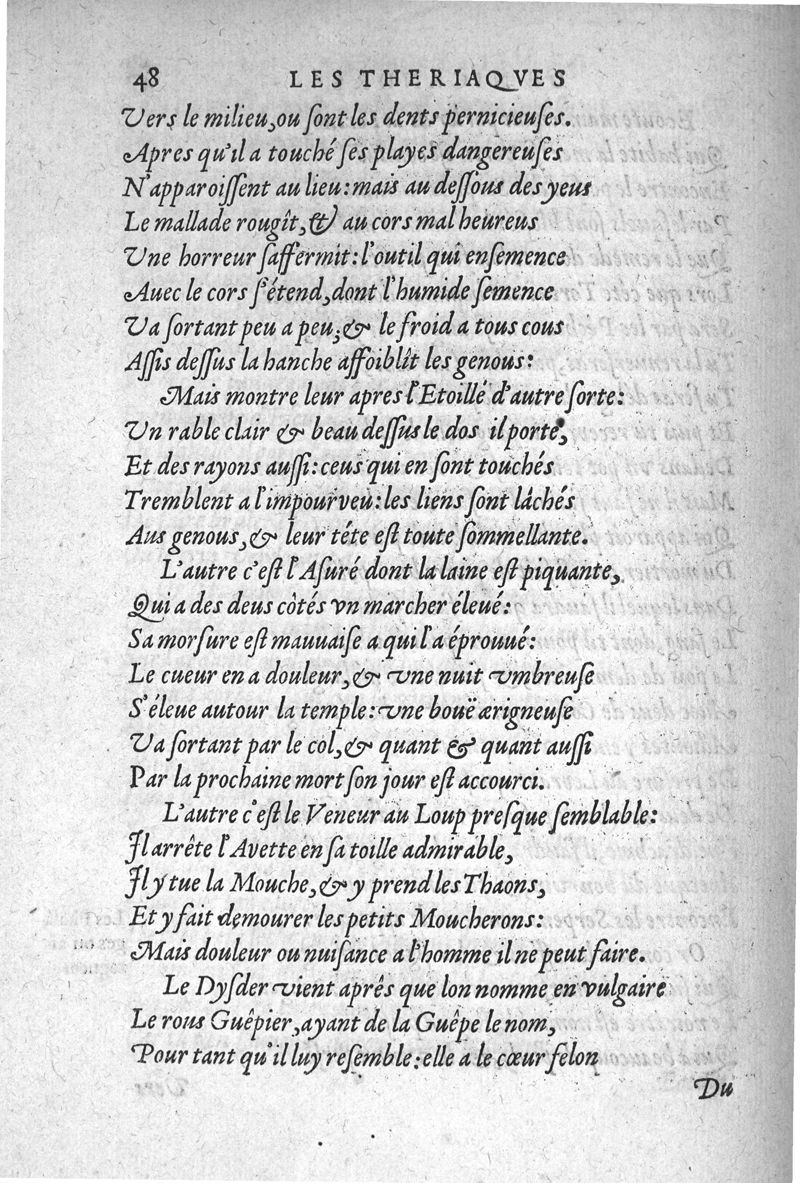 48 LES THERIAQVES
Vers le milieu, ou ſont les dents pernicieuſes.
Apres qu'il a touché ſes playes dangereuſes
N'apparoiſſent au lieu: mais au deſſous des yeus
Le mallade rougît, & au cors mal heureus
Une horreur ſaffermit: l'outil qui enſemence
Auec le cors ſ'étend, dont l'humide ſemence
Va ſortant peu a peu, & le froid a tous cous
Aſſis deſſus la hanche affoiblît les genous:
Mais montre leur apres l'Etoillé d'autre ſorte:
Un rable clair & beau deſſus le dos il porte,
Et des rayons auſſi: ceus qui en ſont touchés
Tremblent a l'impourveu: les liens ſont lâchés
Aus genous, & leur téte eſt toute ſommellante.
L'autre c'eſt l'Aſuré dont la laine eſt piquante,
Qui a des deus côtés vn marcher éleué:
Sa morſure eſt mauuaiſe a qui l'a éprouué:
Le cueur en a douleur, & vne nuit vmbreuſe
S'éleue autour la temple: vne bouë ærigneuſe
Va ſortant par le col, & quant & quant auſſi
Par la prochaine mort ſon jour eſt accourci.
L'autre c'eſt le Veneur au Loup preſque ſemblable:
Il arrête l'Avette en ſa toille admirable,
Il y tue la Mouche, & y prend les Thaons,
Et y fait demourer les petits Moucherons:
Mais douleur ou nuiſance a l'homme il ne peut faire.
Le Dyſder vient aprês que lon nomme en vulgaire
Le rous Guêpier, ayant de la Guêpe le nom,
Pour tant qu'il luy reſemble: elle a le cœur felon
Du